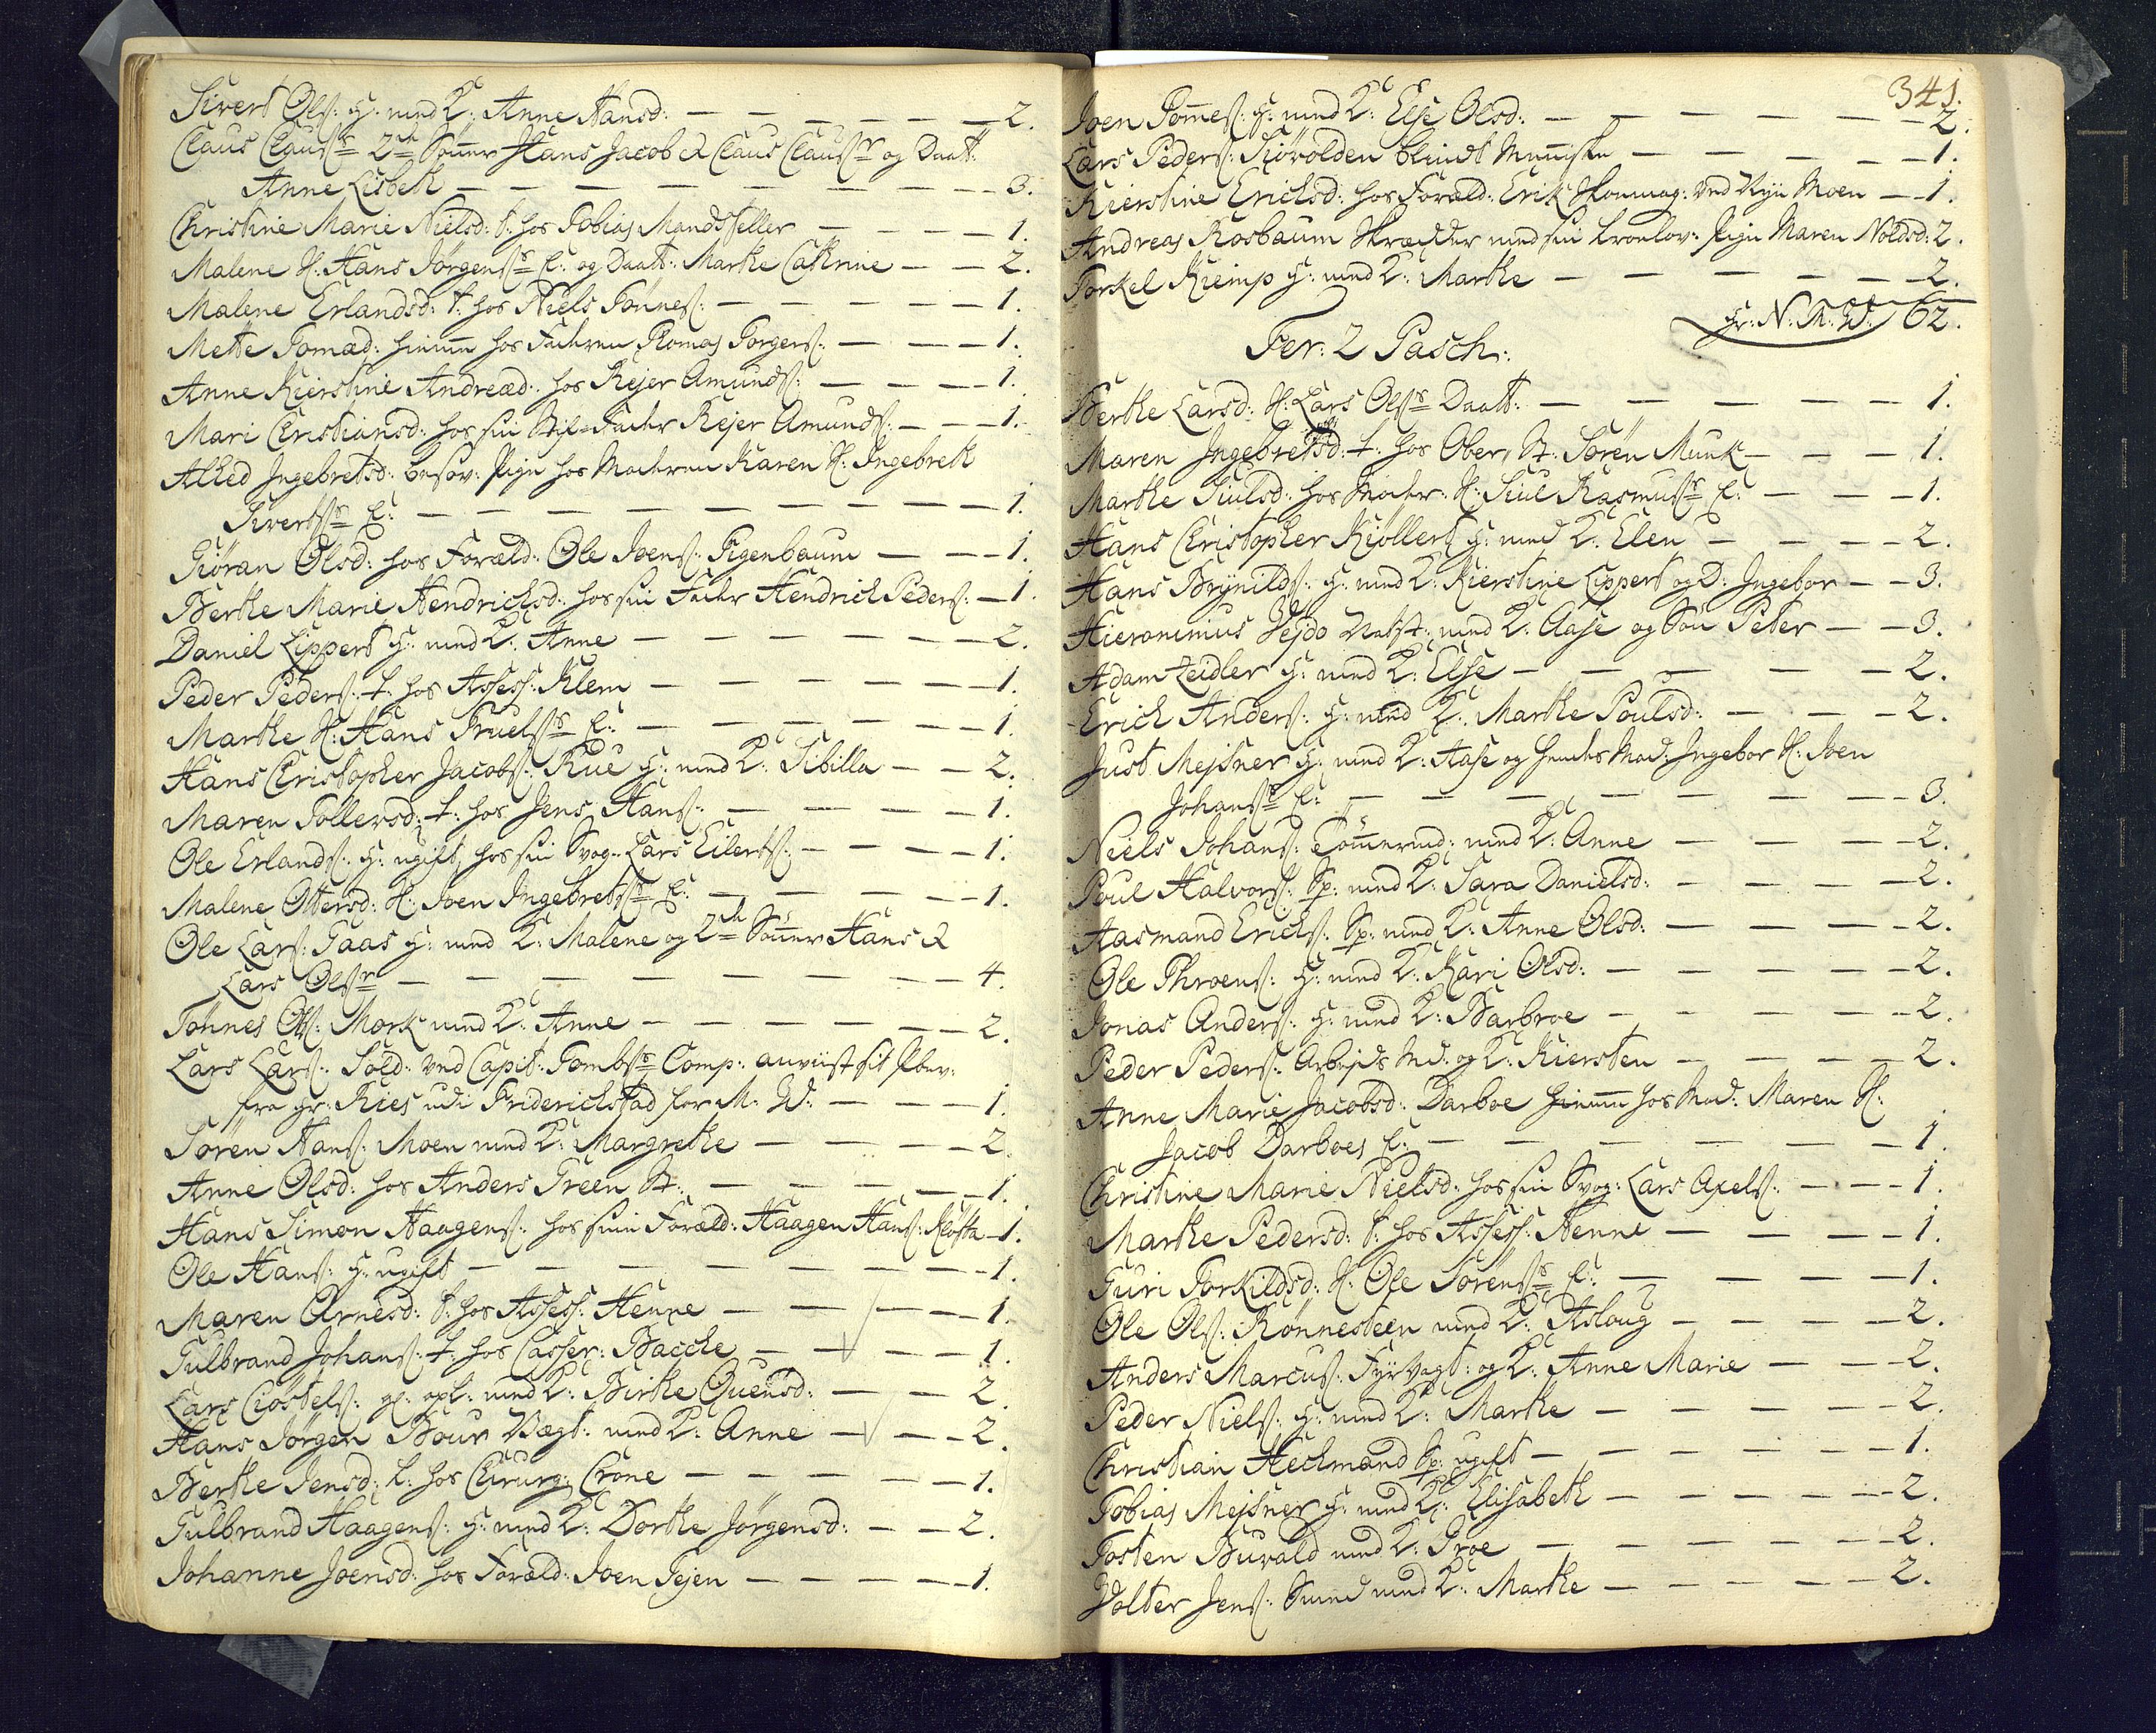 Sivert Ols: H: med K: Anne Hansd: — 2.
Claus Clausns 2de Sönner Hans Jacob & Claus Clausnr og Daatt:
Anne Lisbeth — 3.
Christine Marie Nielsd: t: hos Tobias Mandsfeller — 1.
Malene H: Hans Jörgensns E: og Daatt: Marthe Cathrine — 2.
Malene Erlandsd: t: hos Niels Tönnes: — 1.
Mette Tomæd: hiemme hos Fadren Tomas Torgers: — 1.
Anne Kierstine Andreæd: hos Rejer Amunds: — 1.
Mari Christiansd: hos sin Stif-Fader Rejer Amunds: — 1.
Alhed Ingebretsd: besov: Pige hos Moderen Karen H: Ingebreth
Sivertsns E: — 1.
Giöran Olsd: hos Foræld: Ole Joens: Figenbaum — 1.
Berthe Marie Hendrichsd: hos sin Fader Hendrich Peders: — 1.
Daniel Lippert H: med K: Anne — 2.
Peder Peders: t: hos Assess: Klem — 1.
Marthe H: Hans Truelsns E: — 1.
Hans Christopher Jacobs: Rue H: med K: Sibilla — 2.
Maren Tollersd: t: hos Jens Hans: — 1.
Ole Erlands: H: ugift hos sin Svog: Lars Eilerts: — 1.
Malene Ottersd: H: Joen Ingebretsns E: — 1.
Ole Lars: Gaas H: med K: Malene og 2de Sönner Hans &
Lars Olsnr — 4.
Tönnes Ols: Mork med K: Anne — 2.
Lars Lars: Sold: ved Capit: Tombsns Comp: anviist sit Bev:
fra Hr: Ries udi Friderichstad for M: W: — 1.
Sören Hans: Moen med K: Margrethe — 2.
Anne Olsd: hos Anders Green St: — 1.
Hans Simon Haagens: hos sine Foræld: Haagen Hans: Klöfta — 1.
Ole Hans: H: ugift — 1.
Maren Arnesd: t: hos Assess: Henne — 1.
Gulbrand Johans: t: hos Casser: Bacche — 1.
Lars Castels: gl: opl: med K: Birthe Quensd: — 2.
Hans Jörgen Bour Vægt: med K: Anne — 2.
Berthe Jensd: t: hos Chirurg: Crone — 1.
Gulbrand Haagens: H: med K: Dorthe Jörgensd: — 2.
Johanne Joensd: hos Foræld: Joen Tejen — 1.
341.
Joen Tomes: H: med K: Else Olsd: — 2.
Lars Peders: Kiörolden blindt Menniske — 1.
Kierstine Erichsd: hos Foræld: Erik Skomag: ved Nye Moen — 1.
Andreas Rosbaum Skrædder med sin trolov: Pige Maren Noldsd: 2.
Torkel Kiemp H: med K: Marthe — 2.
Hr: N: M: W: 62.
Fer: 2 Pasch:
Berthe Larsd: H: Lars Olsns Daatt: — 1.
Maren Ingebretsd: t: hos Ober St: Sören Munk — 1.
Marthe Siulsd: hos Moder: H: Siul Rasmusns E: — 1.
Hans Christopher Kiöllert H: med K: Elen — 2.
Hans Brynilds: H: med K: Kierstine Lippert og D: Ingebor — 3.
Hieronimus Hejdo med K: Aase og Sön Peter — 3.
Adam Zeidler H: med K: Else — 2.
Erich Anders: H: med K: Marthe Poulsd: — 2.
Just Mejsner H: med K: Aase og hendes Mod: Ingebor H: Joen
Johansns E: — 3.
Niels Johans: Tömermd: med K: Anne — 2.
Poul Halvors: Sp: med K: Sara Danielsd: — 2.
Aasmand Erichs: Sp: med K: Anne Olsd: — 2.
Ole Throens: H: med K: Kari Olsd: — 2.
Jonas Anders: H: med K: Barbroe — 2.
Peder Peders: Arbejds Md: og K: Kiersten — 2.
Anne Marie Jacobsd: Darboe hiemme hos Mod: Maren H:
Jacob Darboes E: — 1.
Christine Marie Nielsd: hos sin Svog: Lars Axels: — 1.
Marthe Pedersd: t: hos Assess: Henne — 1.
Guri Torkildsd: H: Ole Sörensns E: — 1.
Ole Ols: Rönnesteen med K: Aslaug — 2.
Anders Marcus: Fyrvagt: og K: Anne Marie — 2.
Peder Niels: H: med K: Marthe — 2.
Christian Heckmand Sp: ugift — 1.
Tobias Mejsner H: med K: Elisabeth — 2.
Tosten Buvald med K: Groe — 2.
Wolter Jens: Smed med K: Marthe — 2.